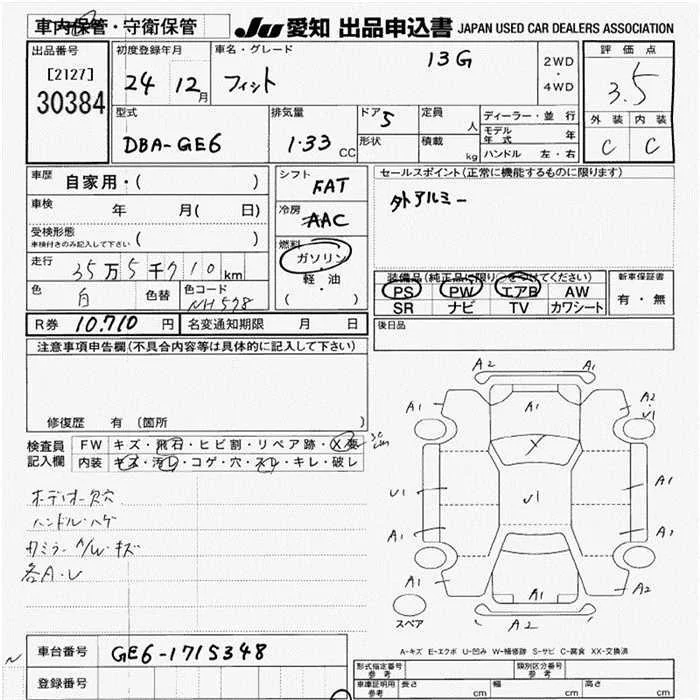 車内保管・守衛保管 JU 愛知 出品申込書 JAPAN USED CAR DEALERS ASSOCIATION
出品番号 初度登録年月 車名・グレード 13G 2WD ・ 4WD 評価点
[2127] 24 12月 フィット 3.5
30384
型式 排気量 ドア 5 定員 人 ディーラー・並行 外装 内装
DBA-GE6 1.33 CC 形状 積載 kg モデル年式 年 C C
ハンドル 左・右
車歴 自家用・( ) シフト FAT セールスポイント(正常に機能するものに限ります)
車検 年 月( 日) 冷房 AAC 外アルミー
受検形態 ( )
車検付きのみ記入して下さい
燃料 ガソリン
走行 35万5千710km ・
軽・油
( )
装備品(純正品に限り○をつけてください) 新車保証書
色 白 色替 色コード NH578 PS PW エアB AW 有・無
SR ナビ TV カワシート
R券 10.710 円 名変通知期限 月 日 後日品
注意事項申告欄(不具合内容等は具体的に記入して下さい)
修復歴 有 (箇所 )
検査員 FW キズ・飛石・ヒビ割・リペア跡・X要
記入欄 内装 キズ・汚レ・コゲ・穴・スレ・キレ・破レ
オーディオー欠穴
ハンドル・ハゲ
各A・U
A2
A1 A1 A2
U1
X
U1 U1 A1
A1 A1
A1 A1 A2
スペア A2
A-キズ E-エクボ U-凹み W-補修跡 S-サビ C-腐食 XX-交換済
車台番号 GE6-1715348
登録番号
型式指定番号 参考 類別区分番号 参考
車庫証明用 参考 長さ cm 幅 cm 高さ cm